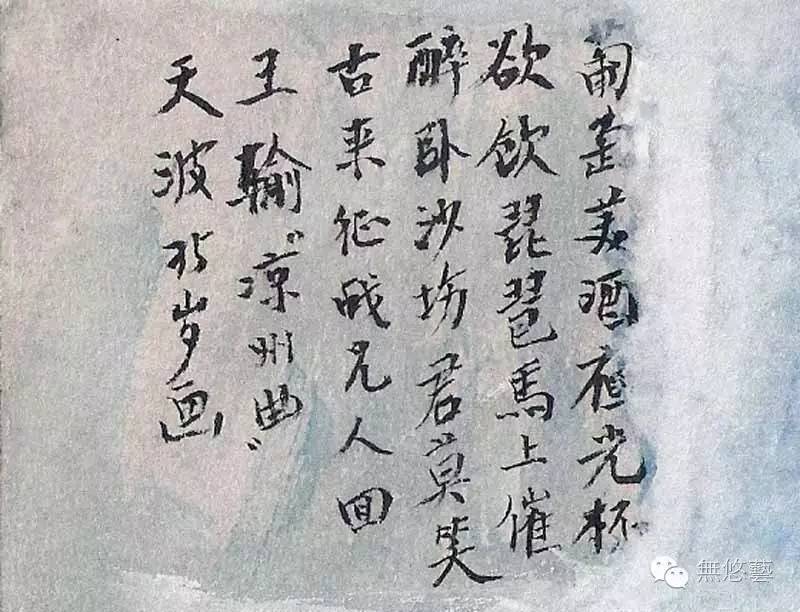 葡萄美酒夜光杯
欲飲琵琶馬上催
醉卧沙场君莫笑
古来征战几人回
王輸“凉州曲”
天波岁画
無悠藝